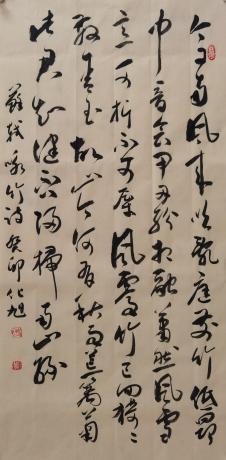 今日南風來吹亂庭前竹低昂
中音會甲刃紛相觸蕭然風雪
意可折不可辱風霽竹已回猗々
散青玉故山今何有秋雨荒籬菊
此君知健否歸掃南軒綠
蘇軾詠竹詩癸卯化旭